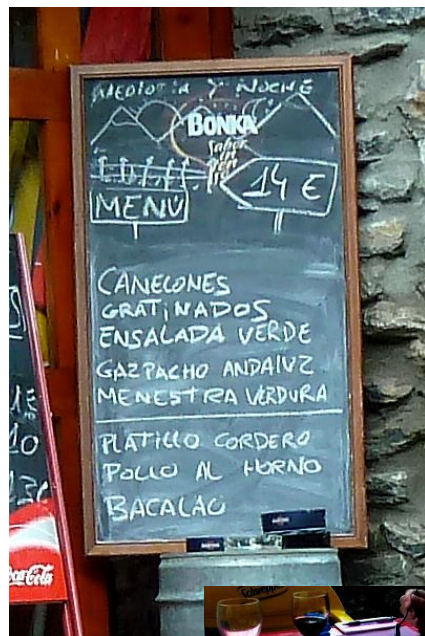 MEDIODIA Y NOCHE
BONKA
Sabor
14 €
MENÚ
CANELONES
GRATINADOS
ENSALADA VERDE
GAZPACHO ANDALUZ
MENESTRA VERDURA
PLATILLO CORDERO
POLLO AL HORNO
BACALAO
Coca-Cola
Schweppes